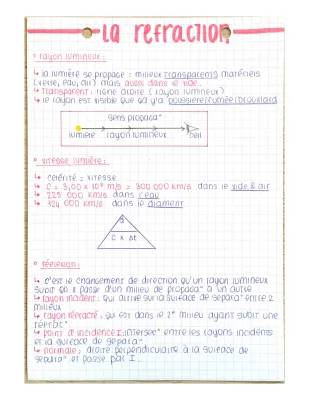 LA REFRACTION
° rayon lumineux :
↳ la lumière se propage : milieux transparents matériels
(verre, eau, air) mais aussi dans le vide...
↳ Transparent : ligne droite (rayon lumineux)
↳ le rayon est visible que qd y'a poussière/fumée/brouillard
sens propaga°
lumière rayon lumineux oeil
° vitesse lumière :
↳ célérité = vitesse
↳ C = 3,00 x 10⁸ m/s = 300 000 km/s dans le vide & air
↳ 225 000 km/s dans l'eau
↳ 124 000 km/s dans le diamant
d
C x Δt
° réflexion :
↳ c'est le changement de direction qu'un rayon lumineux
subit qd il passe d'un milieu de propaga° à un autre
↳ rayon incident : qui arrive sur la surface de separa° entre 2
milieux
↳ rayon réfracté : qui est dans le 2ᵉ milieu ayant subit une
↳ point d'incidence I : intersec° entre les rayons incidents
et la surface de separa°
↳ normale : droite perpendiculaire à la surface de
separa° et passe par I...